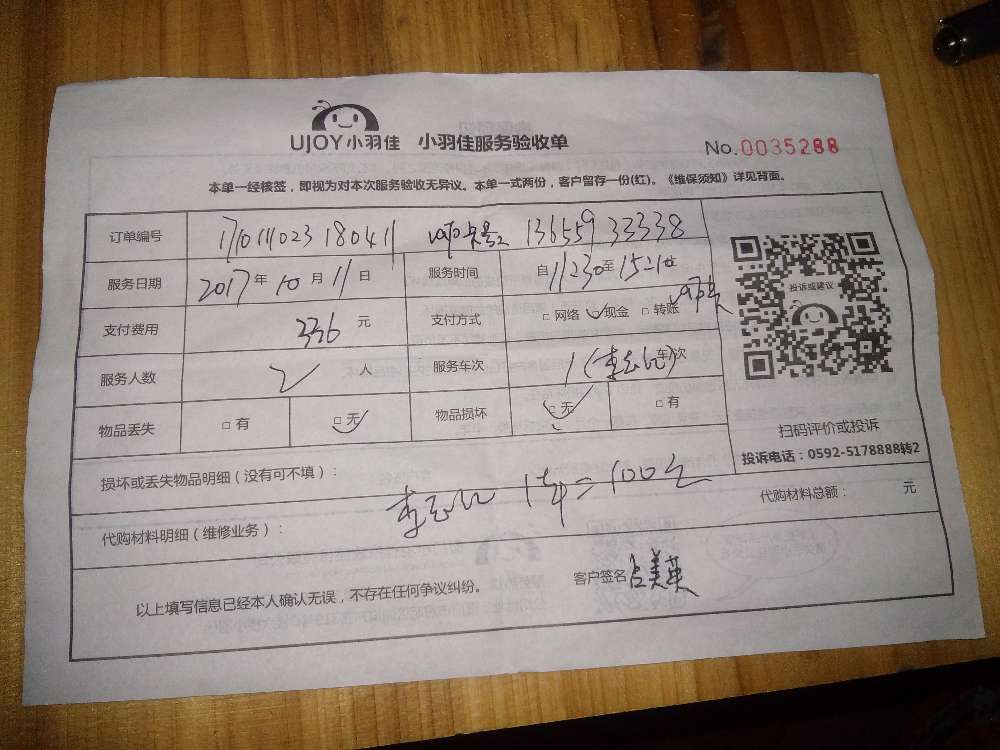 UJOY小羽佳 小羽佳服务验收单 No.0035288
本单一经核签，即视为对本次服务验收无异议。本单一式两份，客户留存一份(红)。《维保须知》详见背面。
订单编号 13655933338
服务日期 2017年10月11日 服务时间 自11230至1521
支付费用 336元 支付方式 □网络 □现金 □转账
投诉或建议
服务人数 2人 服务车次 1 车次
物品丢失 □有 □无 物品损坏 □无 □有
扫码评价或投诉
投诉电话：0592-5178888转2
损坏或丢失物品明细（没有可不填）：
=100元
代购材料明细（维修业务）： 代购材料总额： 元
以上填写信息已经本人确认无误，不存在任何争议纠纷。 客户签名 美英